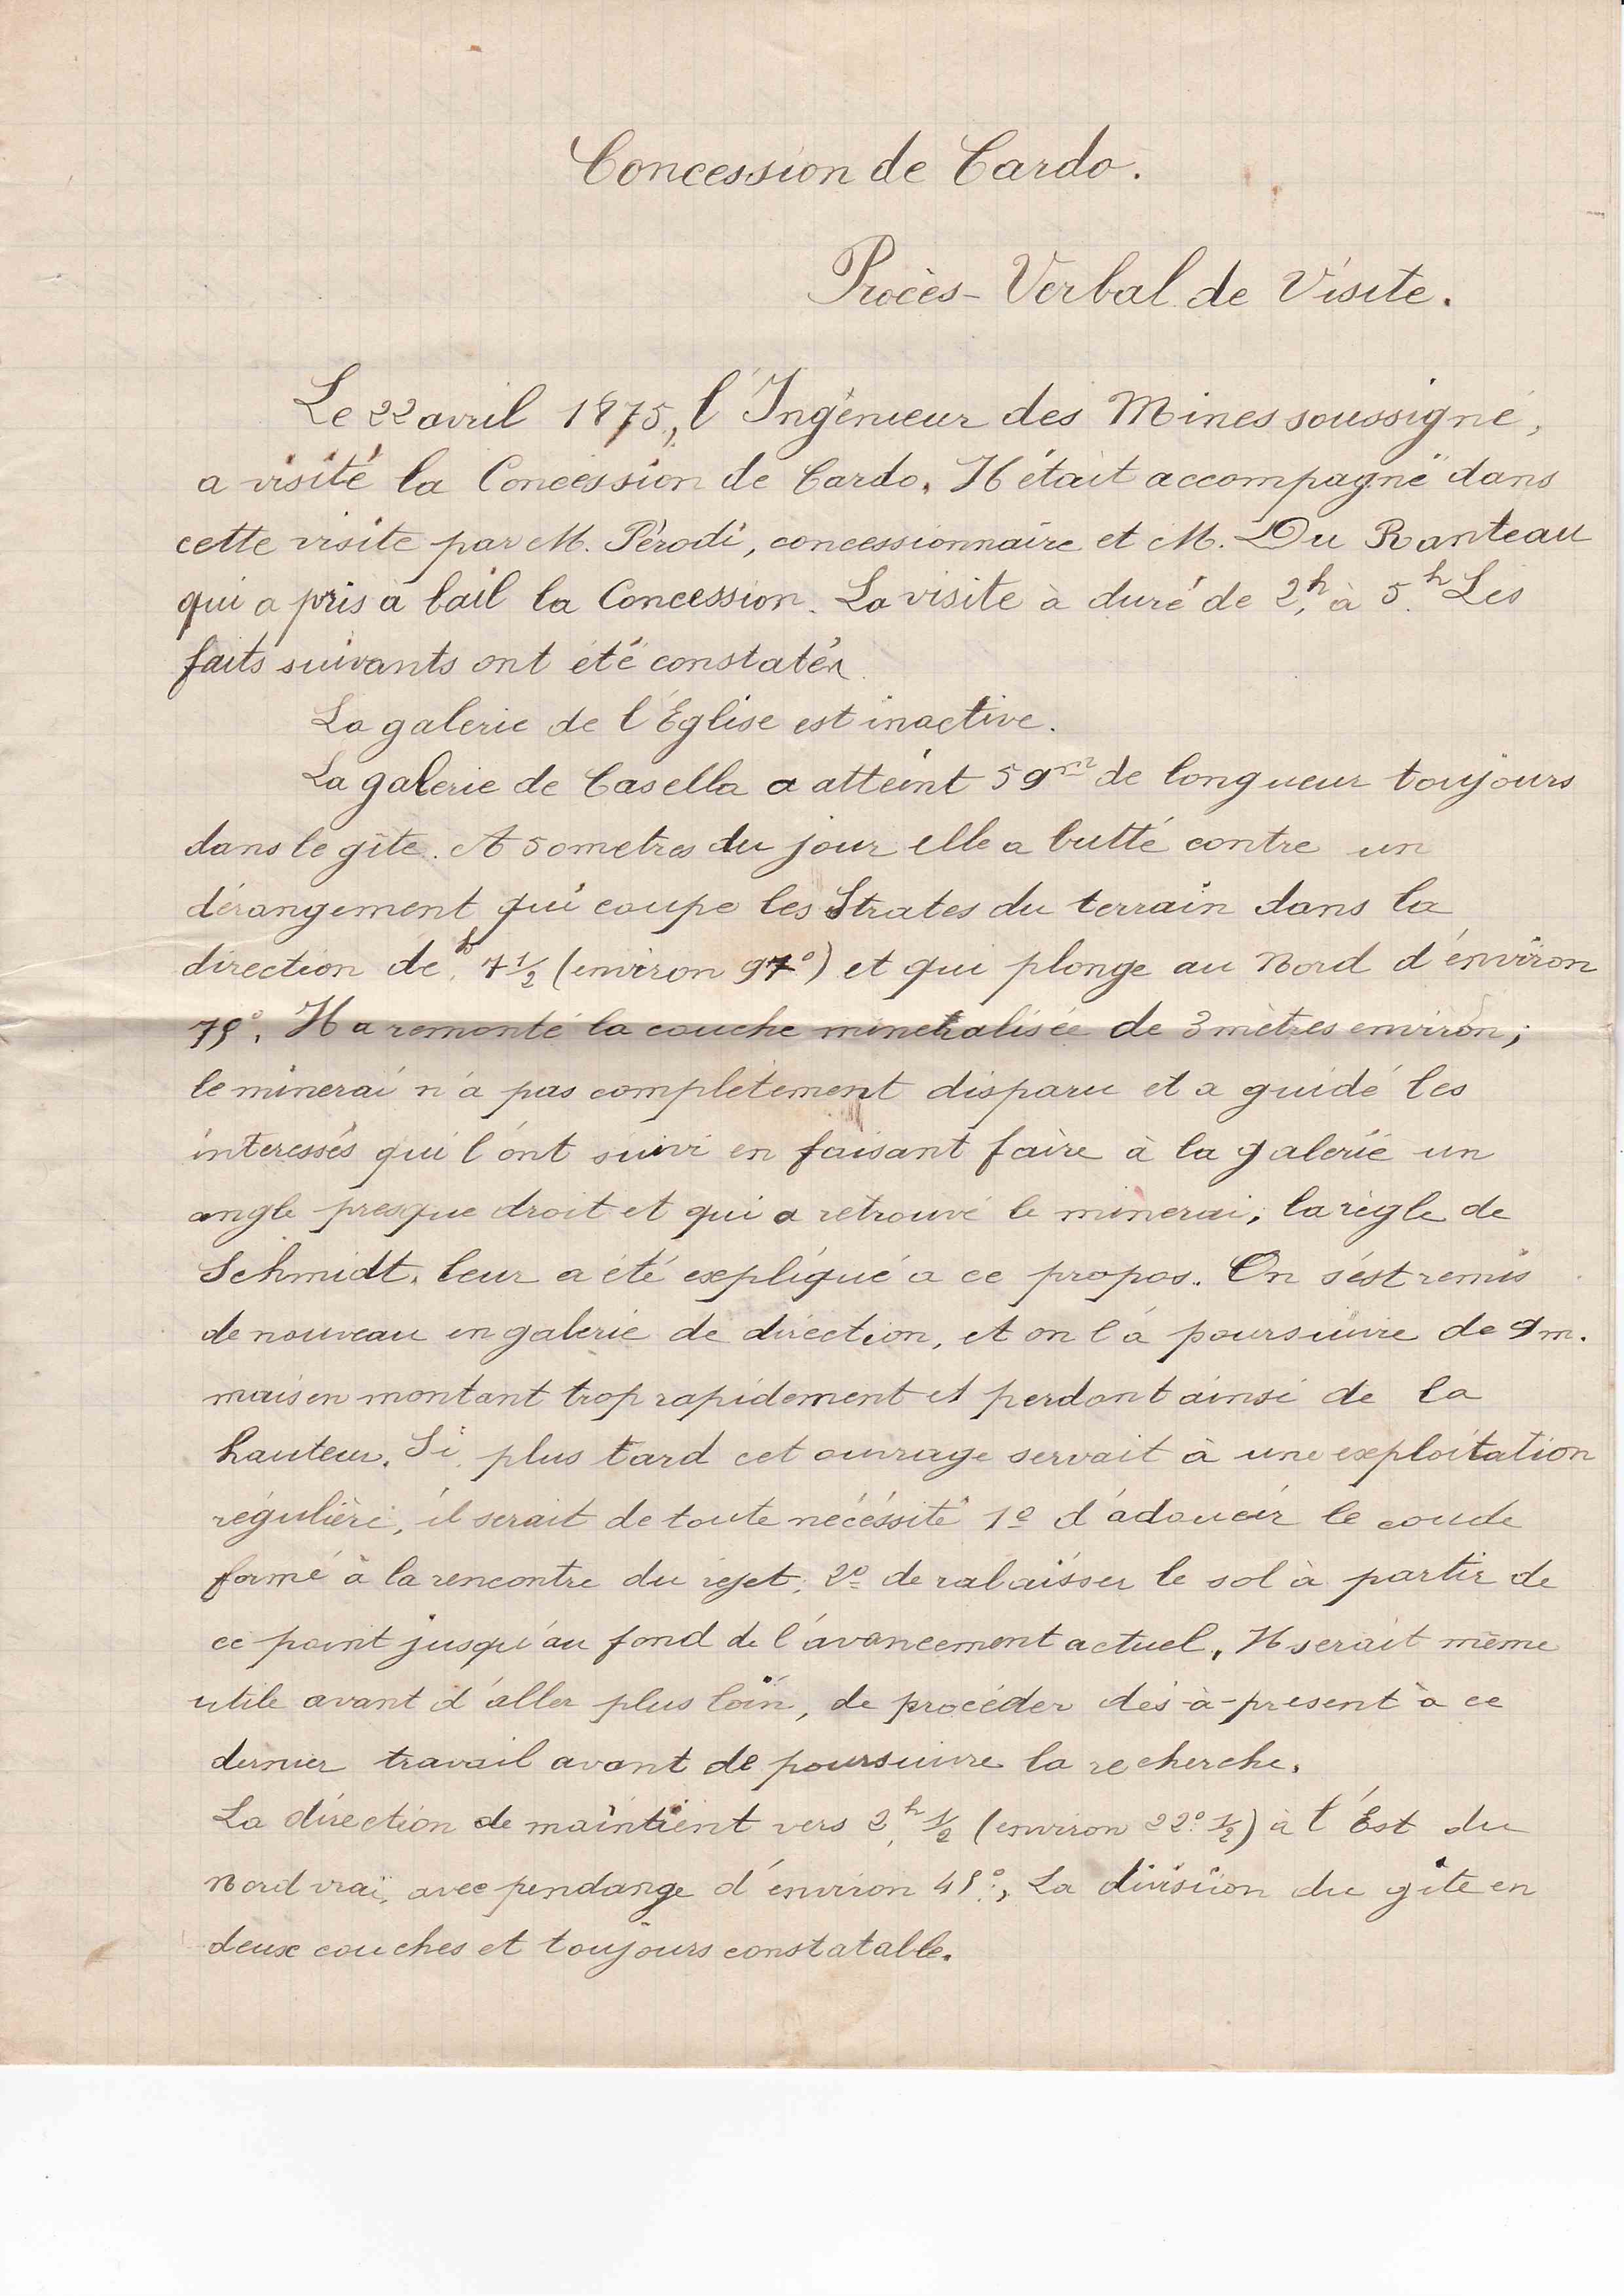 Concession de Cardo.
Procès-Verbal de Visite.
Le 22 avril 1875, l'Ingénieur des Mines soussigné,
a visité la Concession de Cardo. Il était accompagné dans
cette visite par M. Pérodi, concessionnaire et M. Du Ranteau
qui a pris à bail la Concession. La visite à duré de 2h, à 5.h Les
faits suivants ont été constatés
La galerie de l'Église est inactive.
La galerie de Casella a atteint 59m de longueur toujours
dans le gîte. A 50 metres du jour elle a butté contre un
dérangement qui coupe les Strates du terrain dans la
direction de h. 7 1/2 (environ 97°) et qui plonge au Nord d'environ
75°. Il a remonté la couche minéralisée de 3 mètres environ;
le minerai n'a pas complètement disparu et a guidé les
interessés qui l'ont suivi en faisant faire à la galerie un
angle presque droit et qui a retrouvé le minerai; la règle de
Schmidt. leur a été expliqué a ce propos. On s'est remis
de nouveau en galerie de direction, et on l'à poursuivre de 9m.
mais en montant trop rapidement et perdant ainsi de la
hauteur. Si plus tard cet ouvrage servait à une exploitation
régulière, il serait de toute nécéssité 1º d'adoucir le coude
formé à la rencontre du rejet; 2º de rabaisser le sol à partir de
ce point jusqu'au fond de l'avancement actuel. Il serait même
utile avant d'aller plus loin, de procéder dés-à-présent à ce
dernier travail avant de poursuivre la recherche.
La direction de maintient vers 2h. 1/2 (environ 22° 1/2) à l'Est du
Nord vrai, avec pendange d'environ 45°., La division du gîte en
deux couches et toujours constatable.